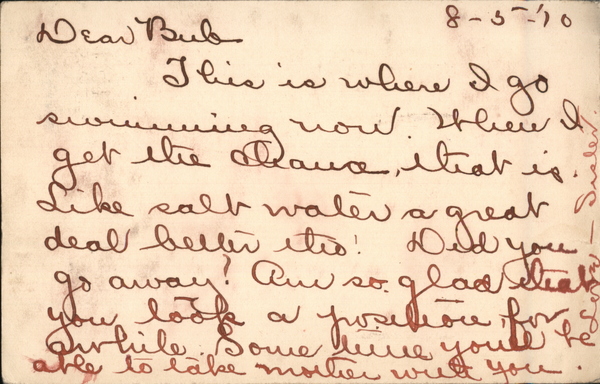 8-5-'10
Dear Bub
This is where I go
swimming now. When I
get the chance, that is.
Like salt water a great
deal better tho! Did you
go away? Am so glad that
you took a position for
awhile. Some time you'll be
able to take mother with you.
Sister